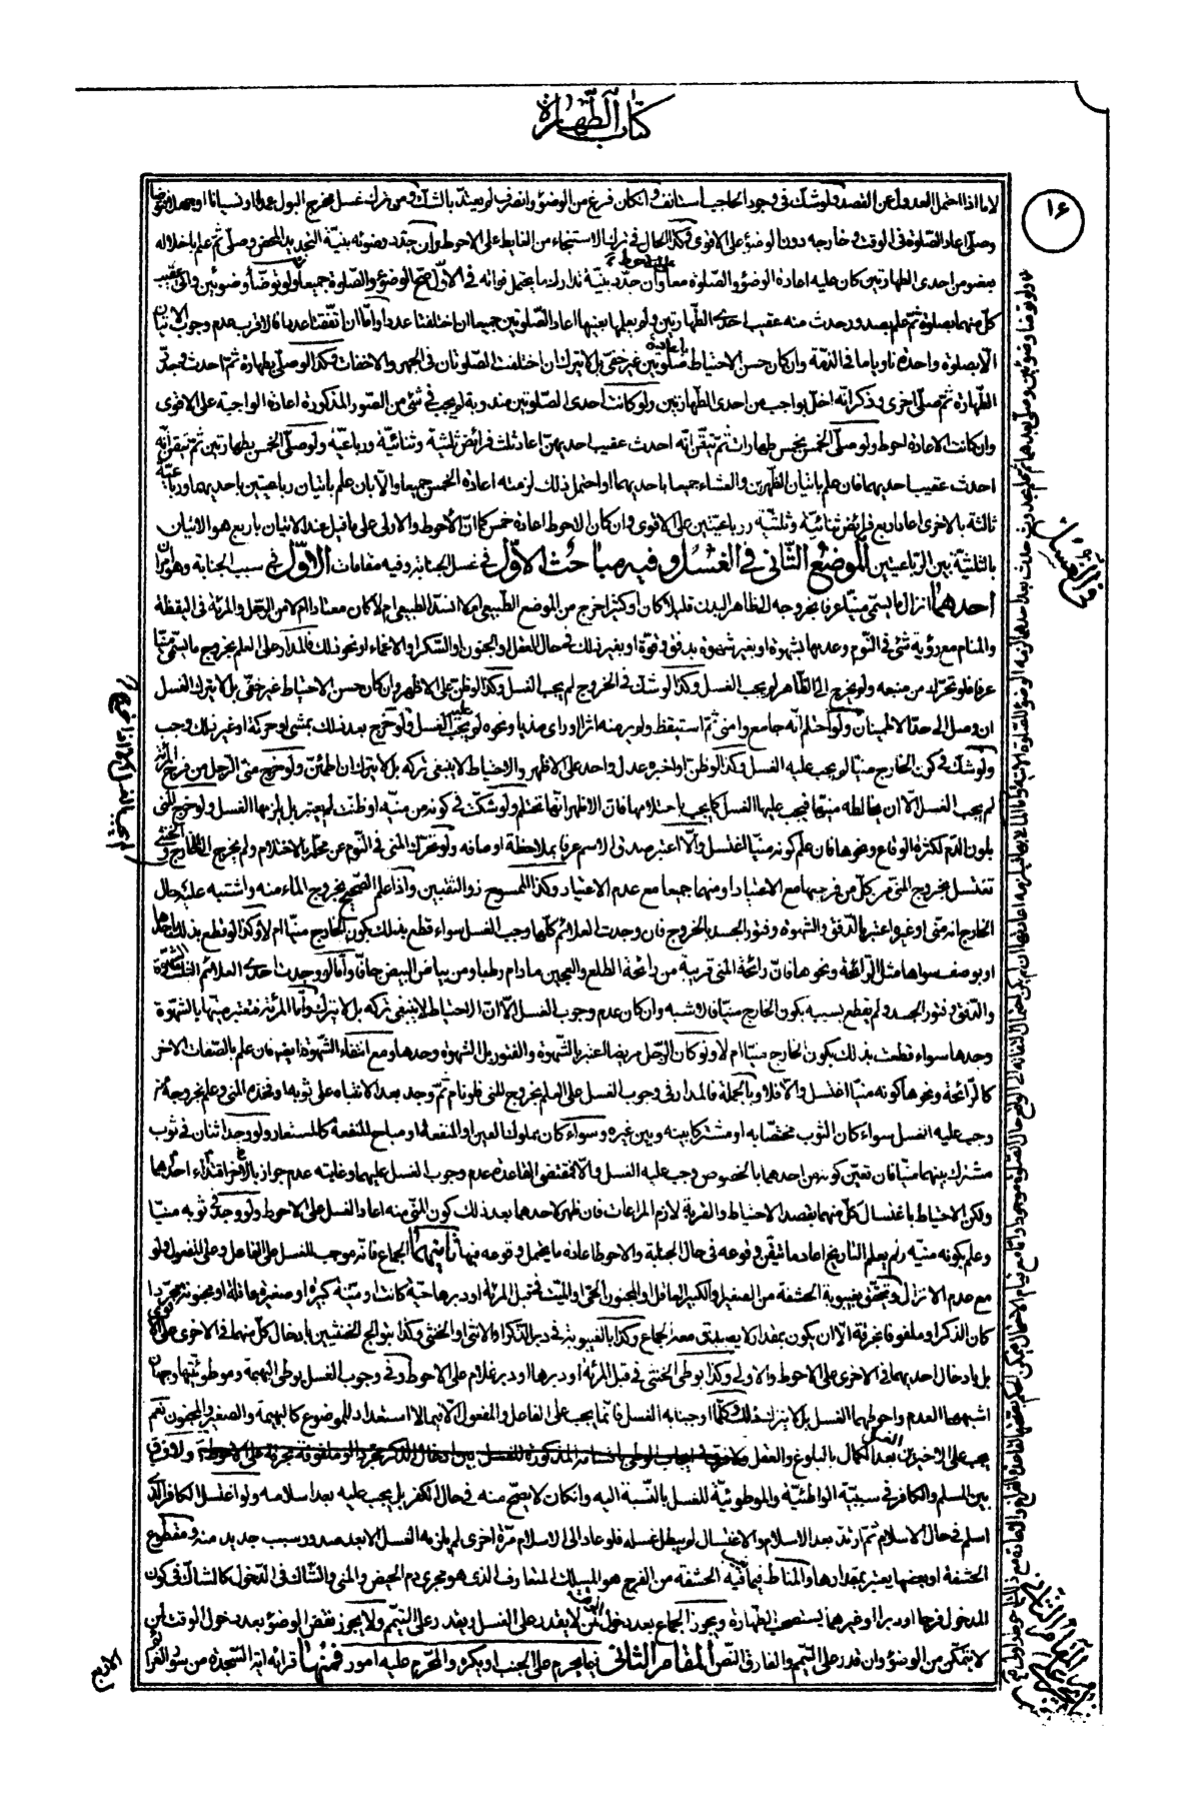 كتاب الطهارة
١٤
لا ما اذا احتمل العدول عن القصد ولو شك في وجود الحاجب استانف وان كان فرغ من الوضوء وانصرف لم يعتد بالشك ومن ترك غسل مخرج البول عمدا او نسيانا او جهلا
وصلى اعاد الصلوة في الوقت وخارجه دون الوضوء على الاقوى وكذا الحال في ترك الاستنجاء من الغايط على الاحوط وان جدد وضوئه بنية التجديد المحض وصلى ثم علم باخلاله
بعضو من احدى الطهارتين كان عليه اعادة الوضوء والصلوة معا وان جدد بنية تدارك ما يحتمل فواته في الاول صح الوضوء والصلوة جميعا ولو توضأ وضوئين واتى عقيب
كل منهما بصلوة ثم علم بصدور حدث منه عقيب احدى الطهارتين ولم يعلمها بعينها اعاد الصلوتين جميعا ان اختلفتا عددا واما ان اتفقتا عددا فالاقرب عدم وجوب الاتيان
الا بصلوة واحدة ناويا ما في الذمة وان كان حسن الاحتياط باعادة صلوتين غير خفي بل لا يترك ان اختلفت الصلوتان في الجهر والاخفات وكذا لو صلى بطهارة ثم احدث وجدد
الطهارة ثم صلى اخرى وذكر انه اخل بواجب من احدى الطهارتين ولو كانت احدى الصلوتين مندوبة لم يجب في شئ من الصور المذكورة اعادة الواجبة على الاقوى
وان كانت الاعادة احوط ولو صلى الخمس بخمس طهارات ثم تيقن انه احدث عقيب احديهن اعاد ثلث فرائض ثلثية وثنائية ورباعية ولو صلى الخمس بطهارتين ثم تيقن انه
احدث عقيب احديهما فان علم باتيان الظهرين والعشاء جميعا باحديهما او احتمل ذلك لزمته اعادة الخمس جميعا والا بان علم باتيان رباعيتين باحديهما ورباعية
ثالثة بالاخرى اعاد اربع فرائض ثنائية وثلثية ورباعيتين على الاقوى وان كان الاحوط اعادة خمس كما ان الاحوط والاولى على ما قيل عند الاتيان باربع هو الاتيان
بالثلثية بين الرباعيتين الموضع الثاني في الغسل وفيه مباحث الاول في غسل الجنابة وفيه مقامات الاول في سبب الجنابة وهو امران
احدهما انزال ما يسمى منيا عرفا بخروجه الى ظاهر البدن قليلا كان او كثيرا خرج من الموضع الطبيعي ام لا انسد الطبيعي ام لا كان معتادا ام لا من الرجل والمرئة في اليقظة
والمنام مع رؤية شئ في النوم وعدمها بشهوة او بغير شهوة بدفق وقوة او بغير ذلك في حال العقل او الجنون او السكر او الاغماء او نحو ذلك فالمدار على العلم بخروج ما يسمى منيا
عرفا فلو تحرك من منبعه ولم يخرج الى الظاهر لم يجب الغسل وكذا لو شك في الخروج لم يجب الغسل وكذا لو ظن على الاظهر وان كان حسن الاحتياط غير خفي بل لا يترك الغسل
ان وصل الى حد الاطمينان ولو احتلم انه جامع وامنى ثم استيقظ ولم ير منه اثرا او راى مذيا ونحوه لم يجب عليه الغسل ولو خرج بعد ذلك بمشي او حركة او غير ذلك وجب
ولو شك في كون الخارج منيا لم يجب عليه الغسل وكذا لو ظن او اخبره عدل واحد على الاظهر والاحتياط لا ينبغي تركه بل لا يترك ان اطمئن ولو خرج مني الرجل من فرج المرئة
لم يجب الغسل الا ان يخالطه منيها فيجب عليها الغسل كما يجب باحتلامها فان الاظهر انها تحتلم ولو شكت في كونه من منيه او ظنت لم يعتبر بل يلزمها الغسل ولو خرج المني
بلون الدم لكثرة الوقاع ونحوها فان علم كونه منيا اغتسل والا اعتبر صدق الاسم عرفا بملاحظة اوصافه ولو تحرك المني في النوم عن محله بالاحتلام ولم يخرج الى الخارج والخنثى
تغتسل بخروج المني من كل من فرجيها مع الاعتياد او منهما جميعا مع عدم الاعتياد وكذا الممسوح ذو الثقبين واذا علم الصحيح بخروج الماء منه واشتبه عليه حال
الخارج انه مني او غيره اعتبر بالدفق والشهوة وفتور الجسد بالخروج فان وجدت العلائم كلها وجب الغسل سواء قطع بذلك بكون الخارج منيا ام لا وكذا لو قطع بذلك باحدها
او بوصف سواها مثل الرائحة ونحوها فان رائحة المني قريبة من رائحة الطلع والعجين ما دام رطبا ومن بياض البيض جافا واما لو وجدت احدى العلائم الثلث الشهوة
والدفق وفتور الجسد ولم يقطع بسببه بكون الخارج منيا فالاشبه وان كان عدم وجوب الغسل الا ان الاحتياط لا ينبغي تركه بل لا يترك واما المرئة فتعتبر منيها بالشهوة
وحدها سواء قطعت بذلك بكون الخارج منيا ام لا ولو كان الرجل مريضا اعتبر الشهوة والفتور بل الشهوة وحدها ومع انتفاء الشهوة ايضا فان علم بالصفات الاخر
كالرائحة ونحوها كونه منيا اغتسل والا فلا وبالجملة فالمدار في وجوب الغسل على العلم بخروج المني فلو نام ثم وجد بعد الانتباه على ثوبه او فخذه المني وعلم بخروجه منه
وجب عليه الغسل سواء كان الثوب مختصا به او مشتركا بينه وبين غيره وسواء كان مملوك العين او المنفعة او مباح المنفعة كالمستعار ولو وجد اثنان في ثوب
مشترك بينهما منيا فان تعين كونه من احدهما بالخصوص وجب عليه الغسل والا فمقتضى القاعدة عدم وجوب الغسل عليهما وغايته عدم جواز اقتداء احدهما بالاخر
ولكن الاحتياط باغتسال كل منهما بقصد الاحتياط والقربة لازم المراعات فان ظهر لاحدهما بعد ذلك كون المني منه اعاد الغسل على الاحوط ولو وجد في ثوبه منيا
وعلم بكونه منيه ولم يعلم التاريخ اعاد ما تيقن وقوعه في حال الجنابة والاحوط اعادة ما يحتمل وقوعه فيها ثانيهما الجماع فانه موجب للغسل على الفاعل وعلى المفعول ولو
مع عدم الانزال ويتحقق بغيبوبة الحشفة من الصغير والكبير العاقل والمجنون الحي والميت في قبل المرئة او دبرها حية كانت او ميتة كبيرة او صغيرة عاقلة او مجنونة مجردا
كان الذكر او ملفوفا بخرقة الا ان يكون بمقدار لا يصدق معه الجماع وكذا بالغيبوبة في دبر الذكر او الانثى او الخنثى وكذا بتوالج الخنثيين بادخال كل منهما في الاخرى على الاقوى
بل بادخال احديهما في الاخرى على الاحوط والاولى وكذا بوطي الخنثى في قبل المرئة او دبرها او دبر غلام على الاحوط وفي وجوب الغسل بوطي البهيمة وموطوئيتها وجهان
اشبههما العدم واحوطهما الغسل بل لا يترك ذلك وكلما اوجبنا به الغسل فانما يجب على الفاعل والمفعول الا فيما لا استعداد للموضوع كالبهيمة والصغير والمجنون نعم
يجب على الاخيرين بعد الكمال بالبلوغ والعقل الغسل ولا فرق
بين المسلم والكافر في سببية الواطئية والموطوئية للغسل بالنسبة اليه وان كان لا يصح منه في حال الكفر بل يجب عليه بعد اسلامه ولو اغتسل الكافر الذي
اسلم في حال الاسلام ثم ارتد بعد الاسلام والاغتسال لم يبطل غسله فلو عاد الى الاسلام مرة اخرى لم يلزمه الغسل الا بعد صدور سبب جديد منه ومقطوع
الحشفة او بعضها يعتبر بمقدارها والمناط فيما تغيب فيه الحشفة من الفرج هو المسلك المتعارف الذي هو مجرى دم الحيض والمني والشاك في الدخول كالشاك في كون
المدخول فرجا او دبرا او غيرهما يستصحب الطهارة ويجوز الجماع بعد دخول الوقت لمن لا يقدر على الغسل ويقدر على التيمم ولا يجوز نقض الوضوء بعد دخول الوقت لمن
لا يتمكن من الوضوء وان قدر على التيمم والفارق النص المقام الثاني فيما يحرم على الجنب او يكره والمحرم عليه امور فمنها قرائة اية السجدة من سور العزائم
الاربع
في الغسل